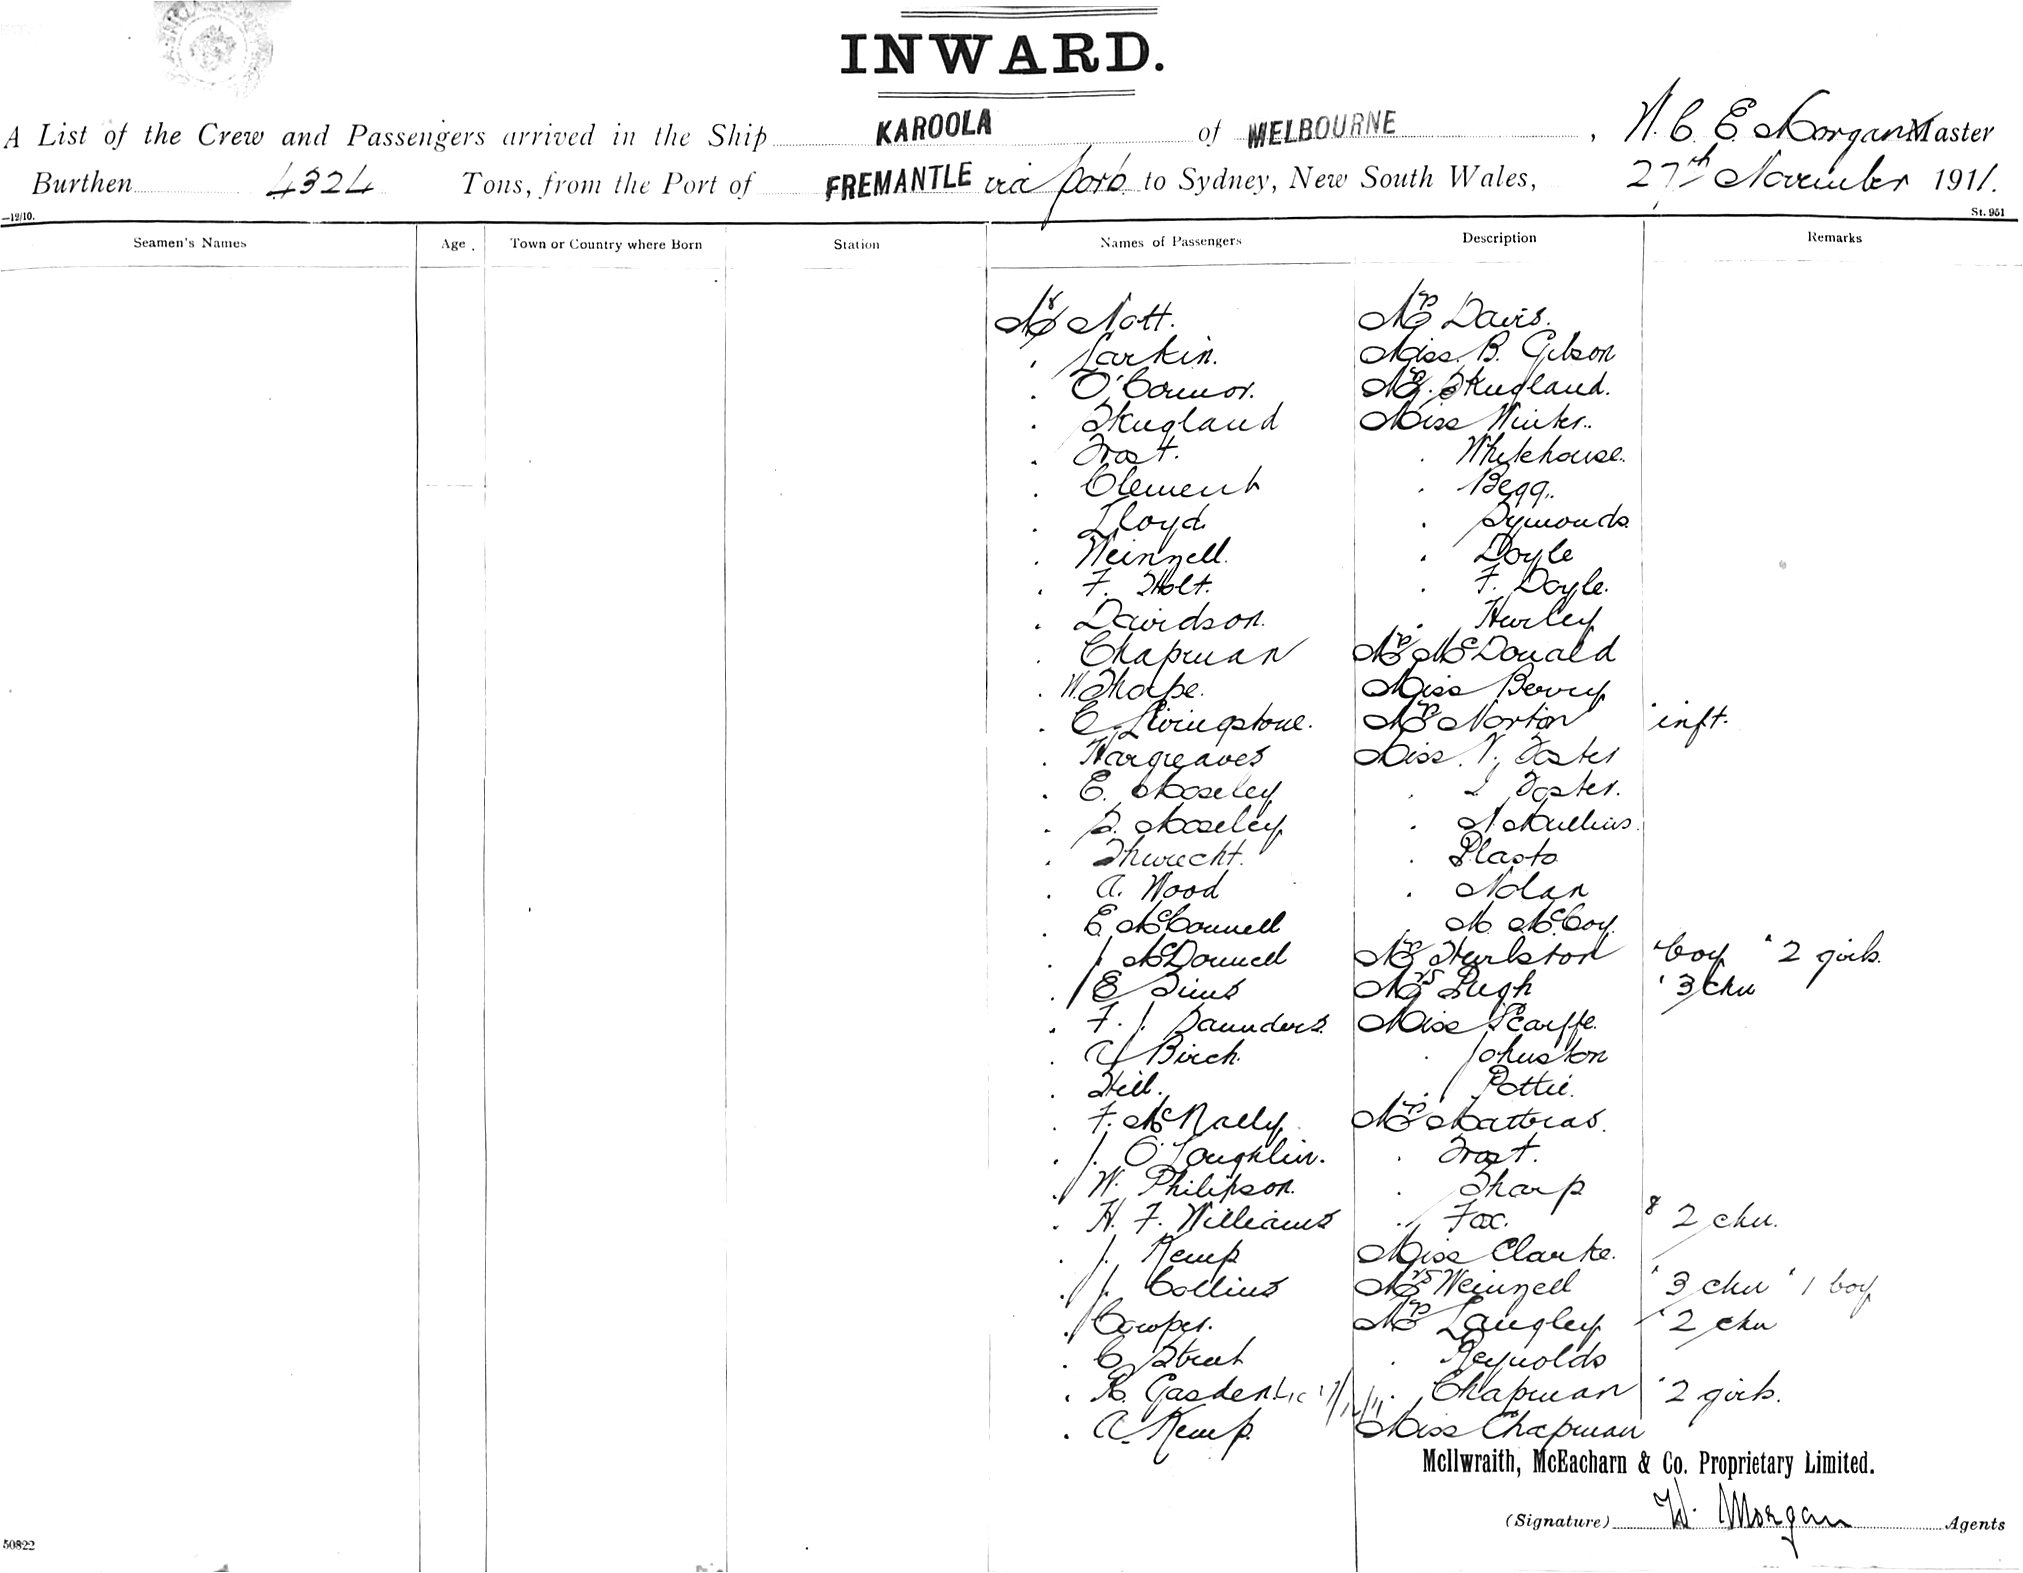 INWARD.
A List of the Crew and Passengers arrived in the Ship KAROOLA of MELBOURNE, N. C. E Morgan Master
Burthen 4324 Tons, from the Port of FREMANTLE via ports to Sydney, New South Wales, 27th November 1911.
—12/10. St. 951
Seamen's Names Age. Town or Country where Born Station Names of Passengers Description Remarks
Mr Nott. Mrs Davis.
. Larkin. Miss. B. Gibson
. O'Connor. Mrs. Skugland.
. Skugland Miss Winter..
. Frost. . Whitehouse.
. Clement . Begg.
. Lloyd . Symonds.
. Weinzell. . Doyle
. F. Holt. . F. Doyle.
. Davidson. . Hurley
. Chapman Mrs McDonald
. W. Thorpe. Miss Berry
. C Livingstone. Mrs Norton " inft.
. Hargreaves Miss. V. Foster
. E. Moseley . L Foster.
. S. Moseley . N. Mullins.
. . Plasto
. A. Wood . Nolan
. E. McConnell . M. McCoy.
. J. McDonnell Mrs Hurlston " boy " 2 girls.
. E Sims Mrs Pugh " 3 chn
. F. J. Saunders. Miss Scarffe.
. A Birch. . Johnston
. Hill. . Pottie.
. F. McNally. Mrs Mattras.
. J. O'Loughlin. . Frost.
. W. Philipson. . Tharp
. H. F. Williams . Fox. & 2 chn.
. J. Kemp Miss Clarke.
. J. Collins Mrs Weinzell " 3 chn " 1 boy
. Cowper. Mrs Langley " 2 chn
. C Street . Reynolds
. R. Gasden . Chapman " 2 girls.
. A. Kemp. Miss Chapman
McIlwraith, McEacharn & Co. Proprietary Limited.
(Signature) W. Morgan Agents
50822